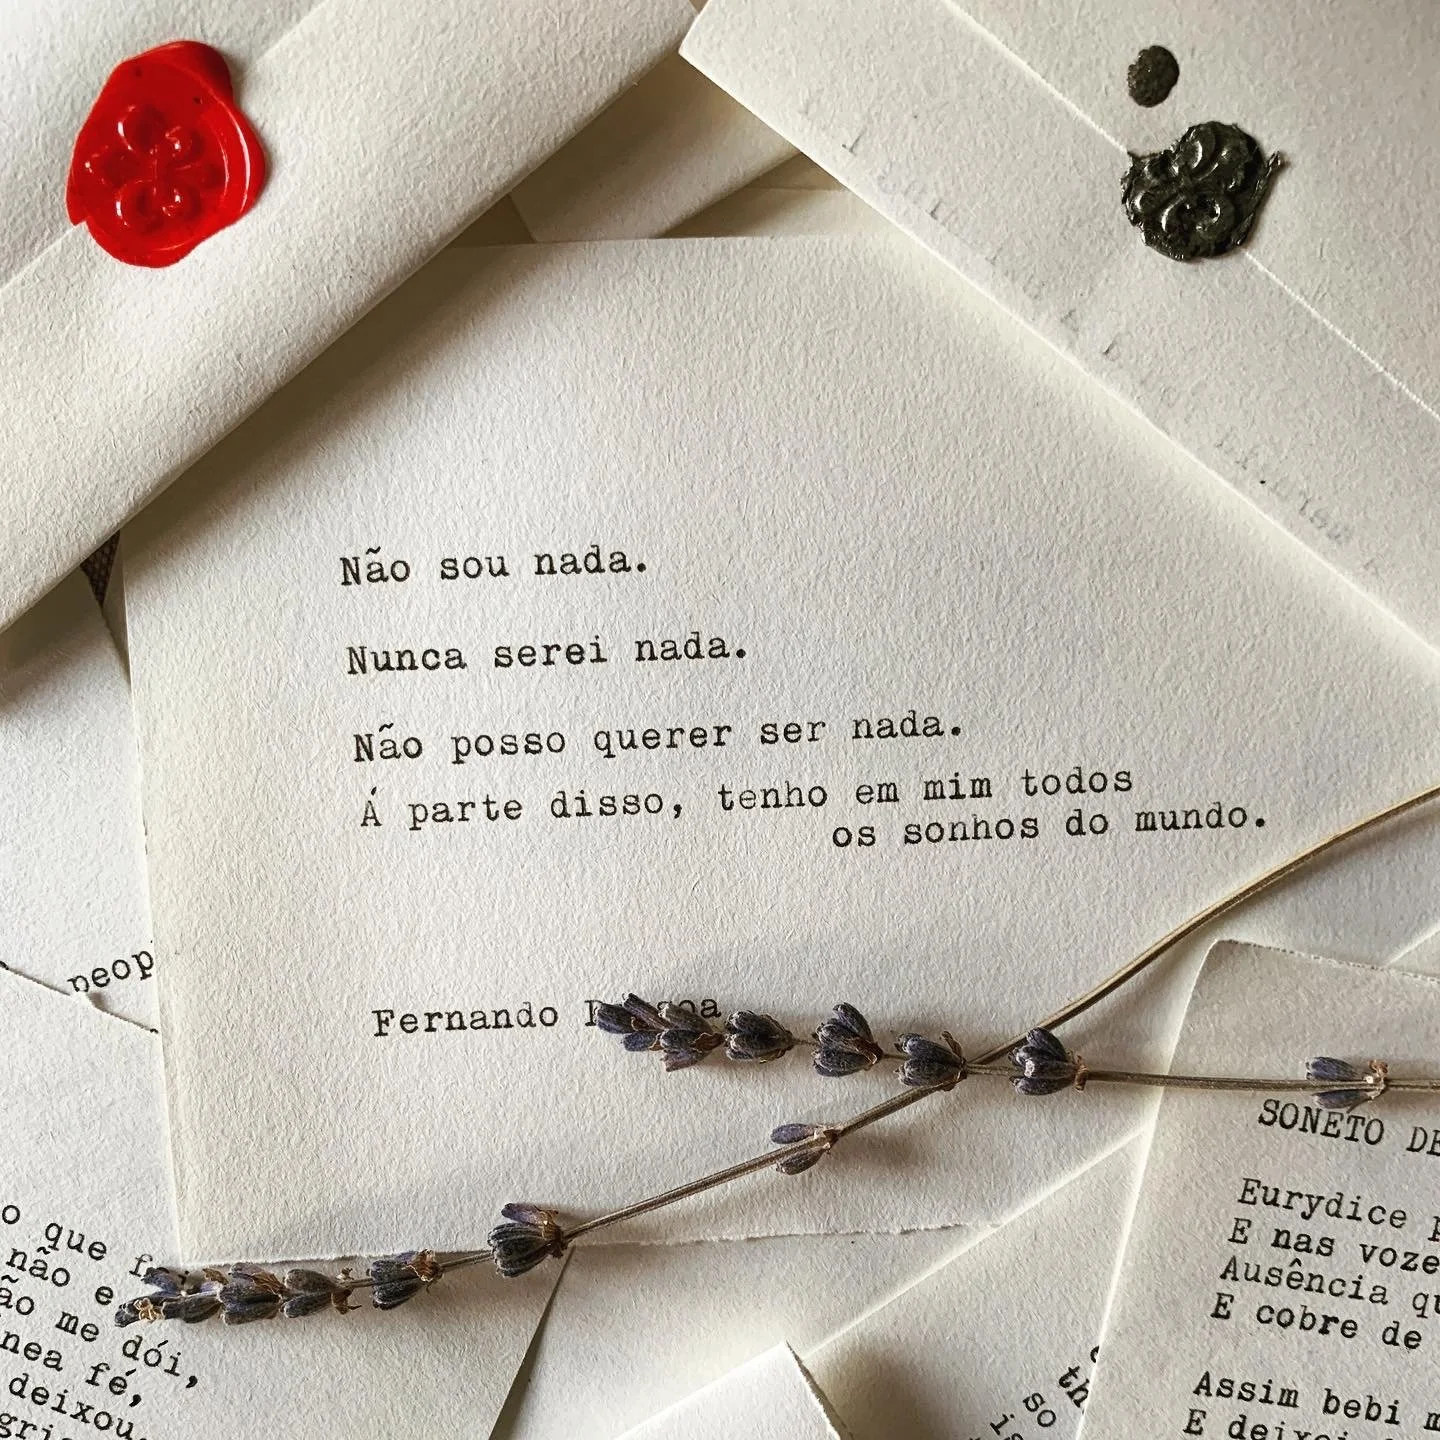 Não sou nada.
Nunca serei nada.
Não posso querer ser nada.
Á parte disso, tenho em mim todos
os sonhos do mundo.
Fernando
neop
o que
não e
ão me dói,
nea fé,
deixou.
SONETO DE
Eurydice
E nas voze
Ausência qu
E cobre de
Assim bebi m
E deixei
th
so
is